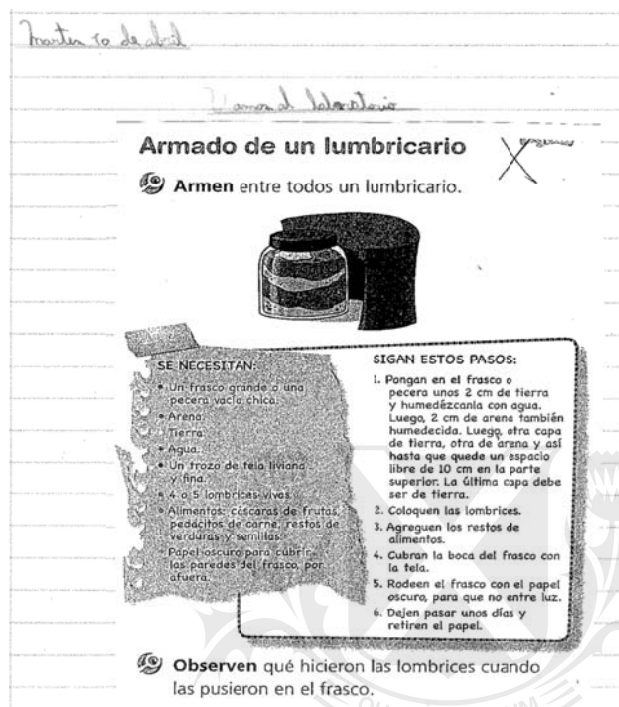 Martes 10 de abril
Vamos al laboratorio
Armado de un lumbricario
Armen entre todos un lumbricario.
SE NECESITAN:
• Un frasco grande o una
pecera vacía chica.
• Arena.
• Tierra.
• Agua.
• Un trozo de tela liviana
y fina.
• 4 o 5 lombrices vivas.
• Alimentos: cáscaras de frutas,
pedacitos de carne, restos de
verduras y semillas.
• Papel oscuro para cubrir
las paredes del frasco, por
afuera.
SIGAN ESTOS PASOS:
1. Pongan en el frasco o
pecera unos 2 cm de tierra
y humedézcanla con agua.
Luego, 2 cm de arena también
humedecida. Luego, otra capa
de tierra, otra de arena y así
hasta que quede un espacio
libre de 10 cm en la parte
superior. La última capa debe
ser de tierra.
2. Coloquen las lombrices.
3. Agreguen los restos de
alimentos.
4. Cubran la boca del frasco con
la tela.
5. Rodeen el frasco con el papel
oscuro, para que no entre luz.
6. Dejen pasar unos días y
retiren el papel.
Observen qué hicieron las lombrices cuando
las pusieron en el frasco.